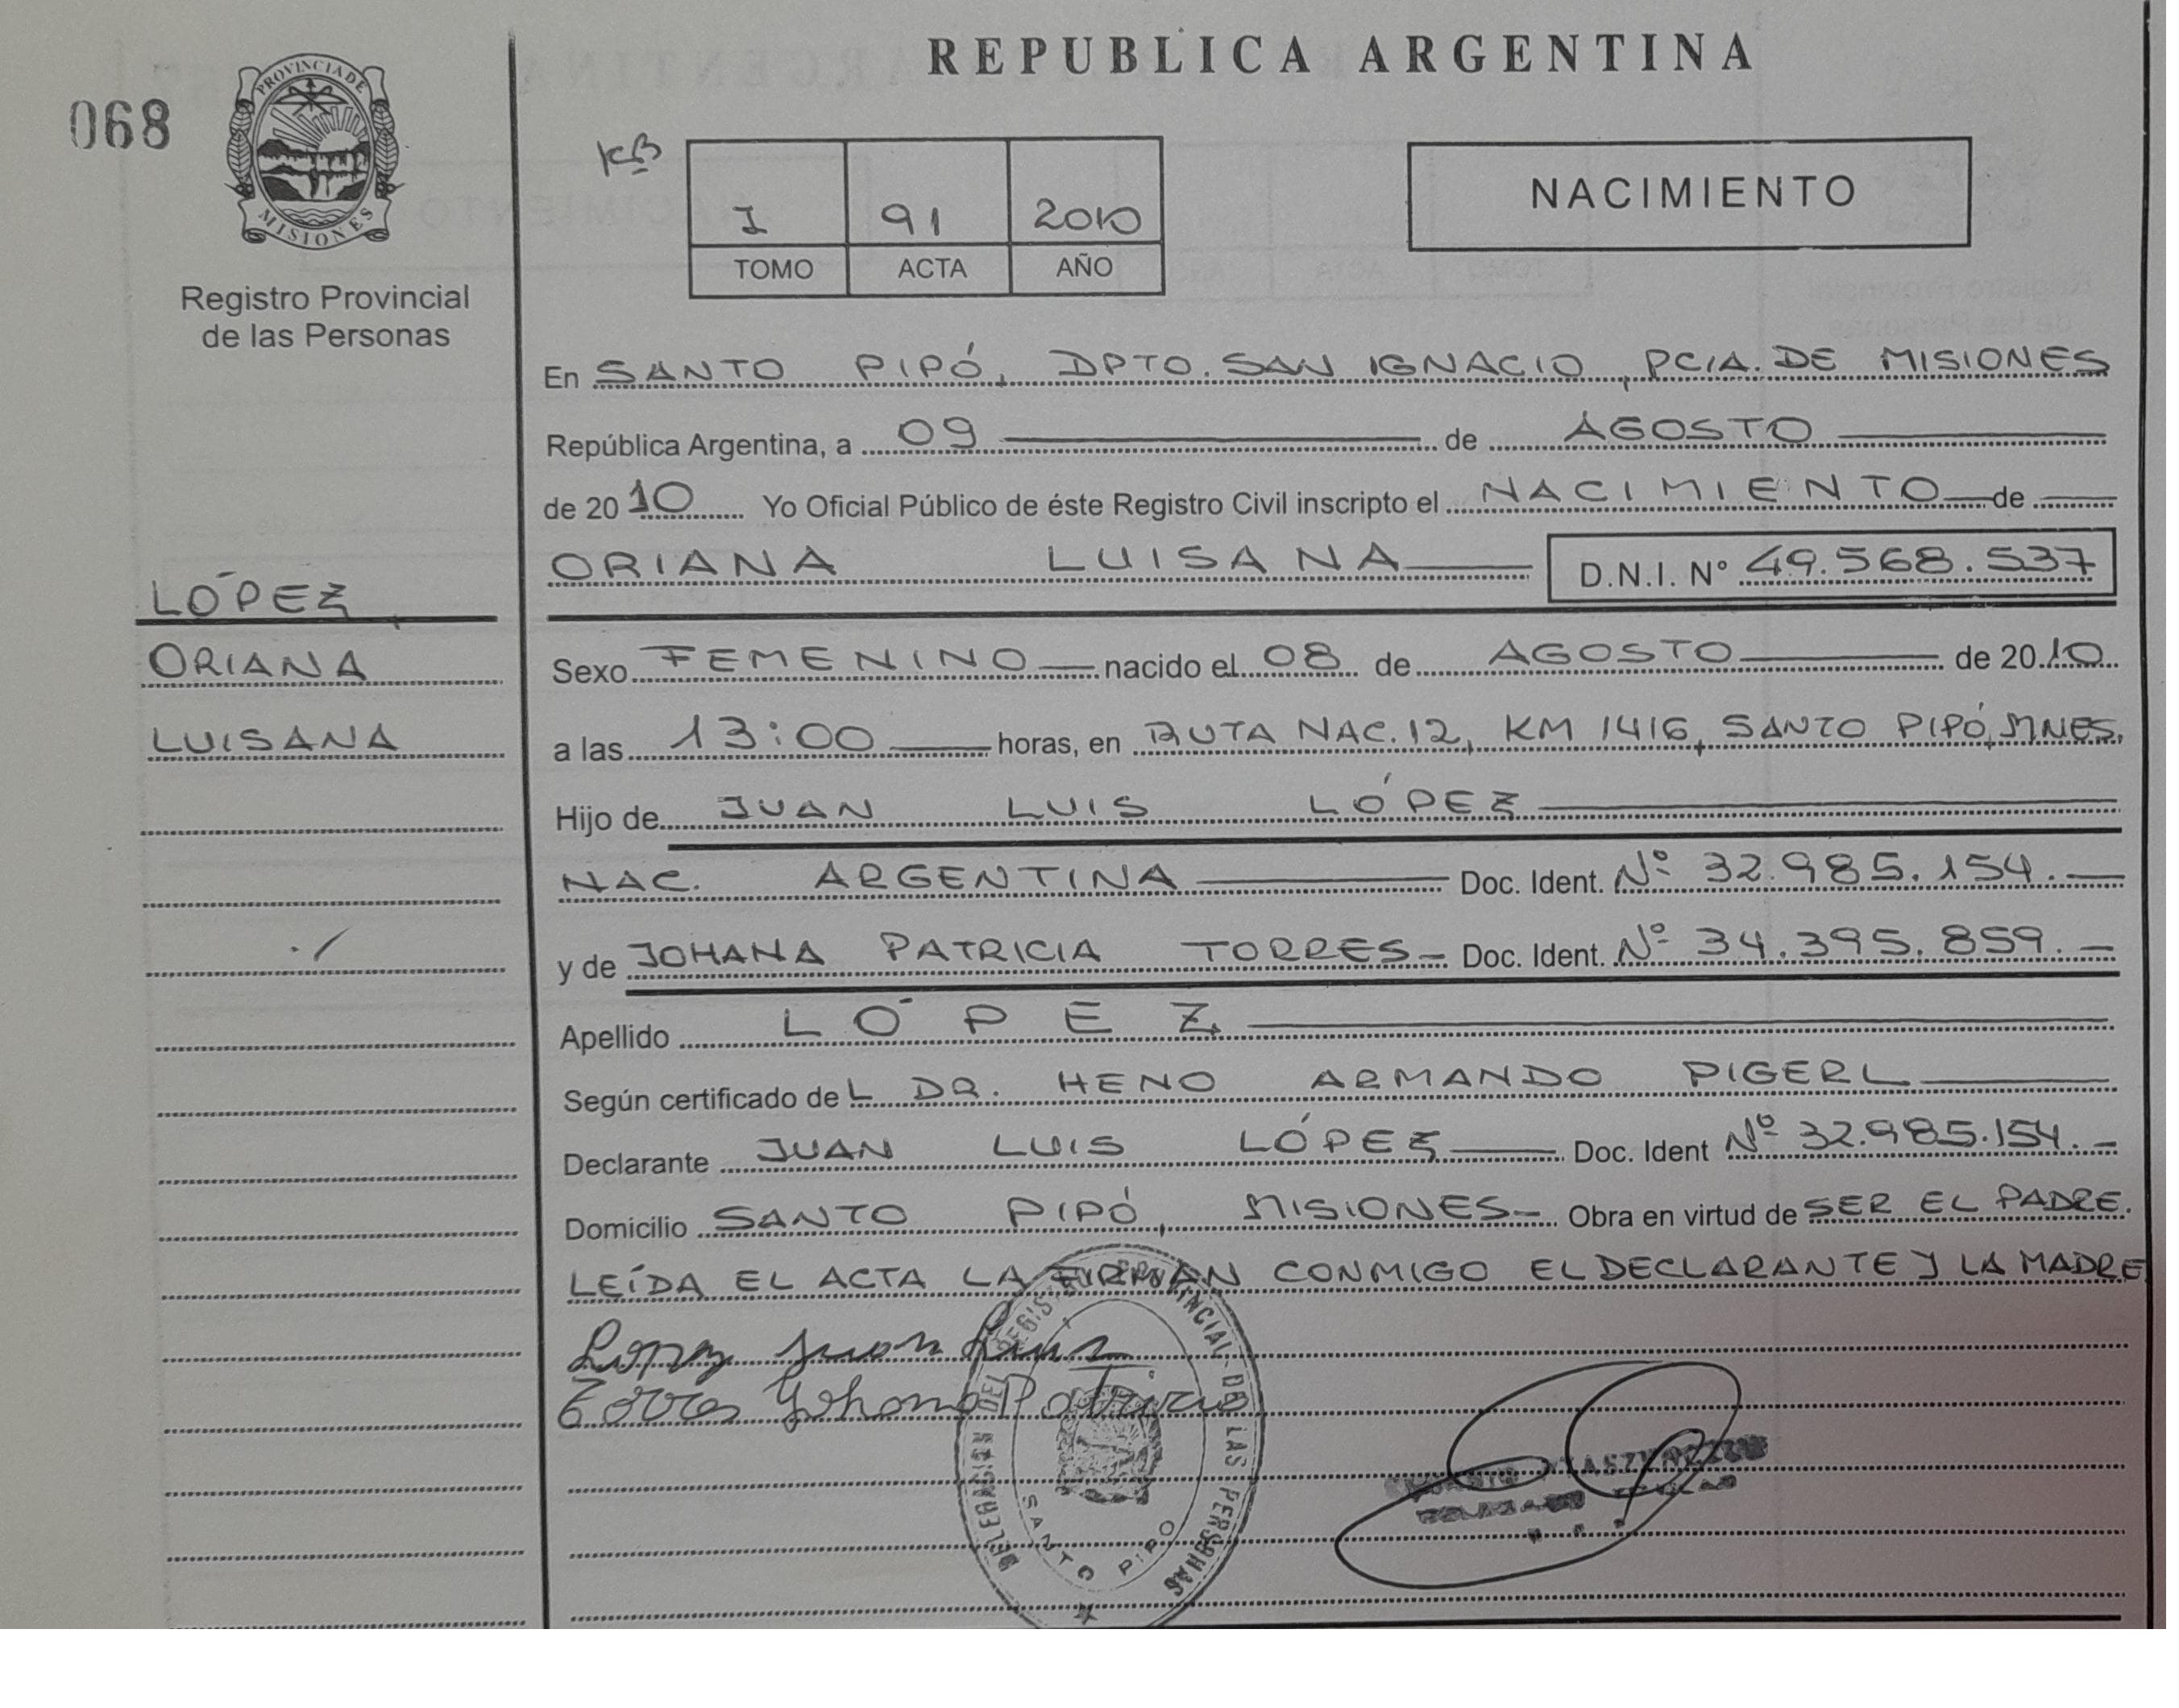 REPUBLICA ARGENTINA
068
PROVINCIA DE
MISIONES
Registro Provincial
de las Personas
KB
I 91 2010
TOMO ACTA AÑO
NACIMIENTO
En SANTO PIPÓ, DPTO. SAN IGNACIO, PCIA. DE MISIONES
República Argentina, a 09 de AGOSTO
de 20 10 Yo Oficial Público de éste Registro Civil inscripto el NACIMIENTO de
ORIANA LUISANA D.N.I. Nº 49.568.537
LÓPEZ,
ORIANA
LUISANA
Sexo FEMENINO nacido el 08 de AGOSTO de 20 10
a las 13:00 horas, en RUTA NAC. 12, KM 1416, SANTO PIPÓ, MNES.
Hijo de JUAN LUIS LÓPEZ
NAC. ARGENTINA Doc. Ident. Nº 32.985.154.
y de JOHANA PATRICIA TORRES Doc. Ident. Nº 34.395.859.
Apellido LÓPEZ
Según certificado de L DR. HENO ARMANDO PIGERL
Declarante JUAN LUIS LÓPEZ Doc. Ident Nº 32.985.154.
Domicilio SANTO PIPÓ, MISIONES Obra en virtud de SER EL PADRE.
LEÍDA EL ACTA LA FIRMAN CONMIGO EL DECLARANTE Y LA MADRE
Lopez Juan Luis
Torres Johana Patricia
DELEGACION DEL REGISTRO PROVINCIAL DE LAS PERSONAS
SANTO PIPO